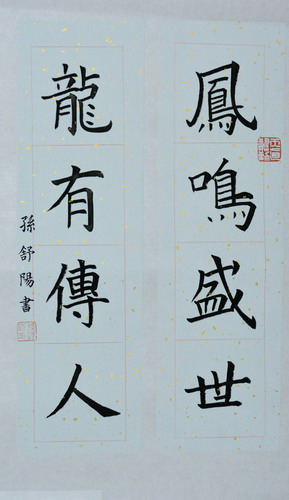 鳳鳴盛世
龍有傳人
孫舒陽書